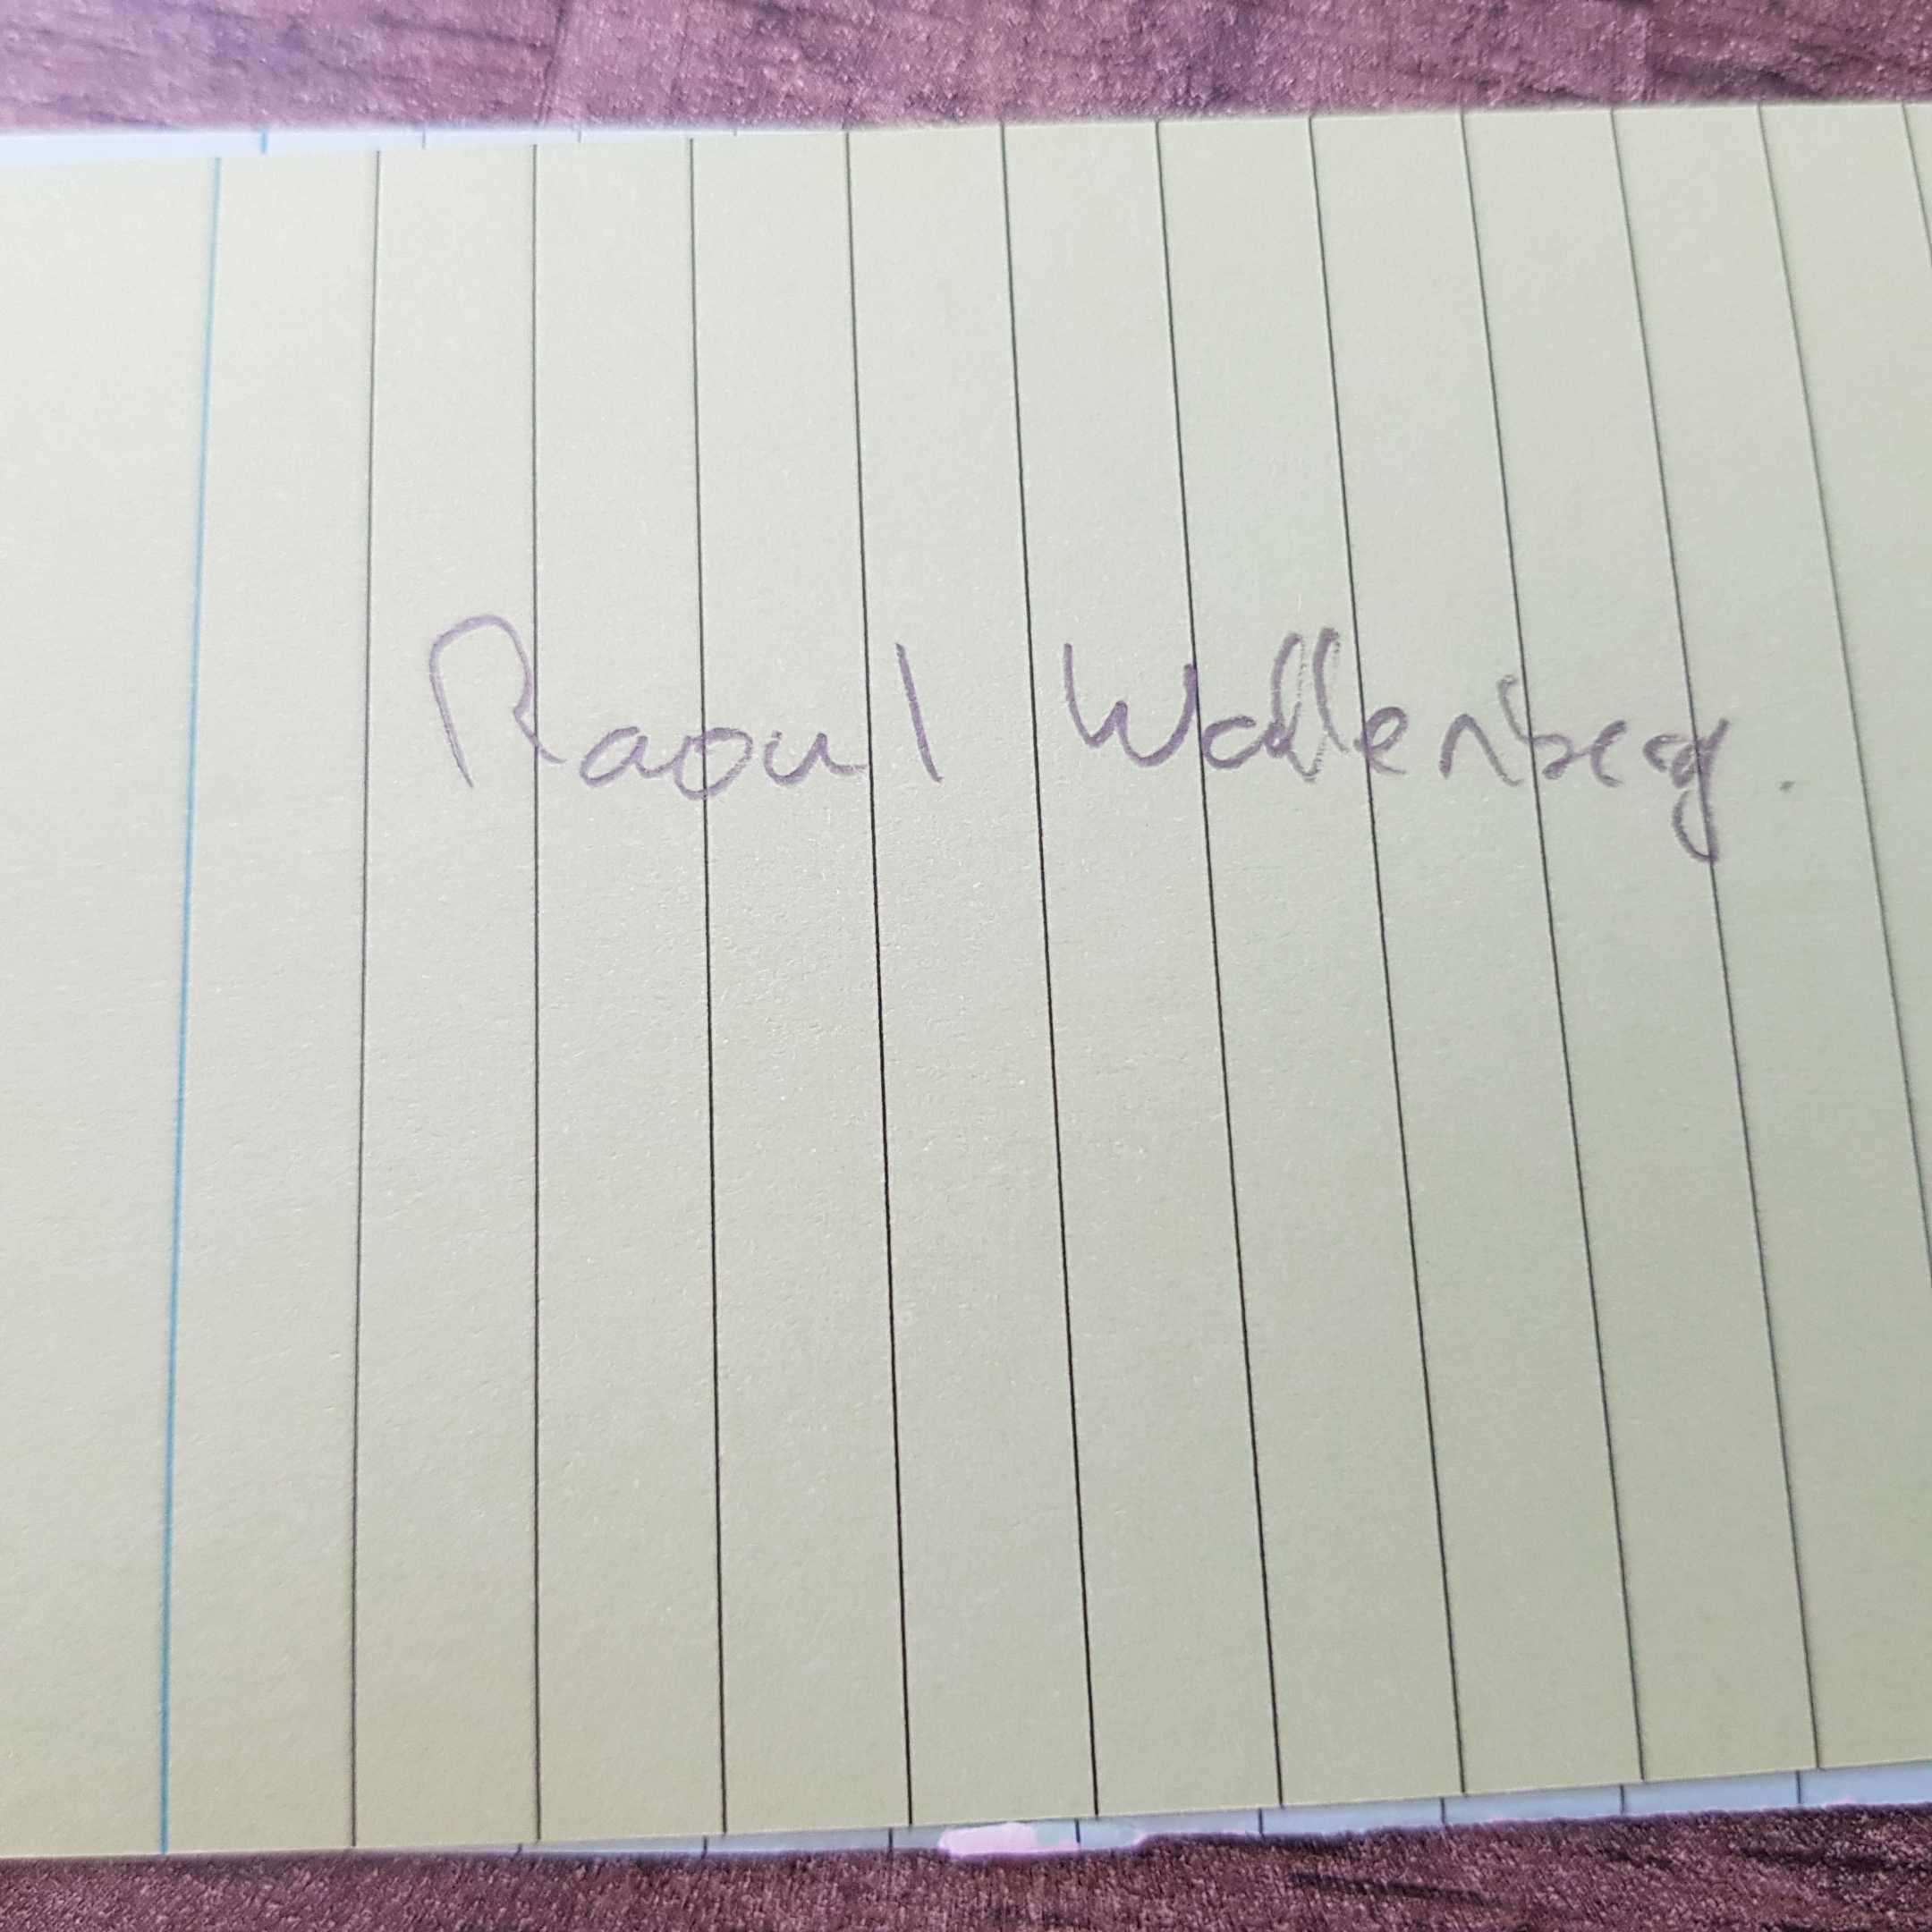 Raoul Wallenberg.